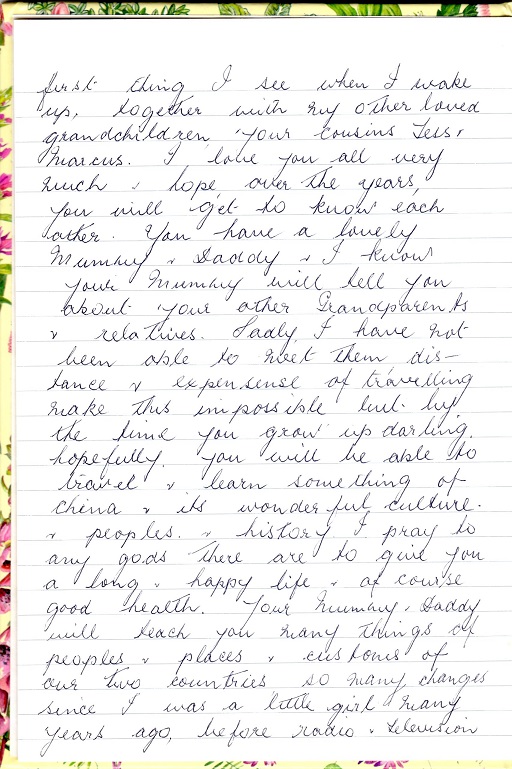 first thing I see when I wake
up, together with my other loved
grandchildren, your cousins Tess,
Marcus. I love you all very
much & hope over the years,
you will get to know each
other. You have a lovely
Mummy & Daddy & I know
your Mummy will tell you
about your other Grandparents
& relatives. Sadly I have not
been able to meet them dis-
tance & expensense of travelling
make this impossible but by
the time you grow up darling,
hopefully, you will be able to
travel & learn something of
China & its wonderful culture.
& peoples. & history I pray to
any gods there are to give you
a long & happy life & of course
good health. Your Mummy, Daddy
will teach you many things of
peoples & places & customs of
our two countries so many changes
since I was a little girl many
years ago, before radio & television